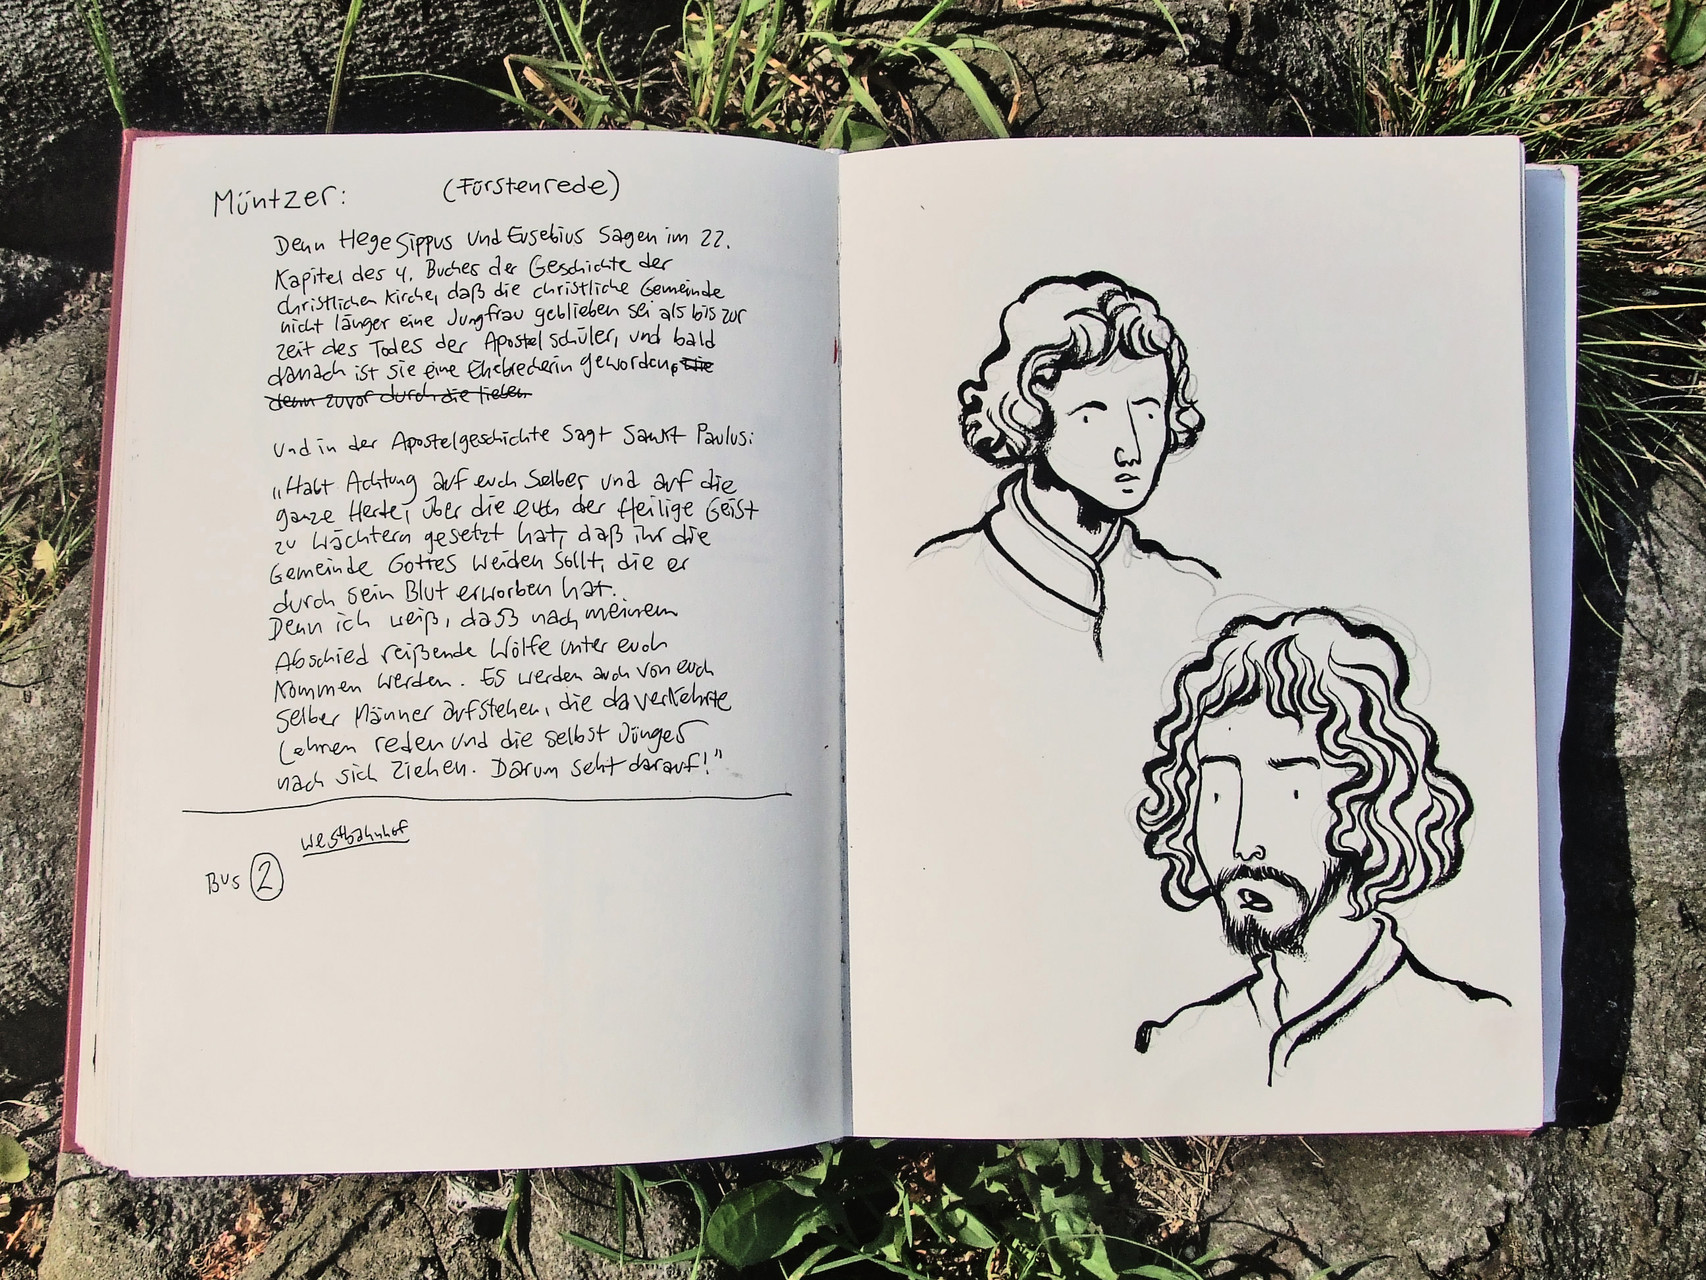 Müntzer: (Fürstenrede)
Denn Hegesippus und Eusebius sagen im 22.
Kapitel des 4. Buches der Geschichte der
christlichen Kirche, daß die christliche Gemeinde
nicht länger eine Jungfrau geblieben sei als bis zur
Zeit des Todes der Apostelschüler, und bald
danach ist sie eine Ehebrecherin geworden, die
denn zuvor durch die lieben
Und in der Apostelgeschichte sagt Sankt Paulus:
„Habt Achtung auf euch selber und auf die
ganze Herde, über die euch der Heilige Geist
zu Wächtern gesetzt hat, daß ihr die
Gemeinde Gottes weiden sollt, die er
durch sein Blut erworben hat.
Denn ich weiß, daß nach meinem
Abschied reißende Wölfe unter euch
kommen werden. Es werden auch von euch
selber Männer aufstehen, die da verkehrte
Lehren reden und die selbst Jünger
nach sich ziehen. Darum seht darauf!"
Westbahnhof
Bus 2